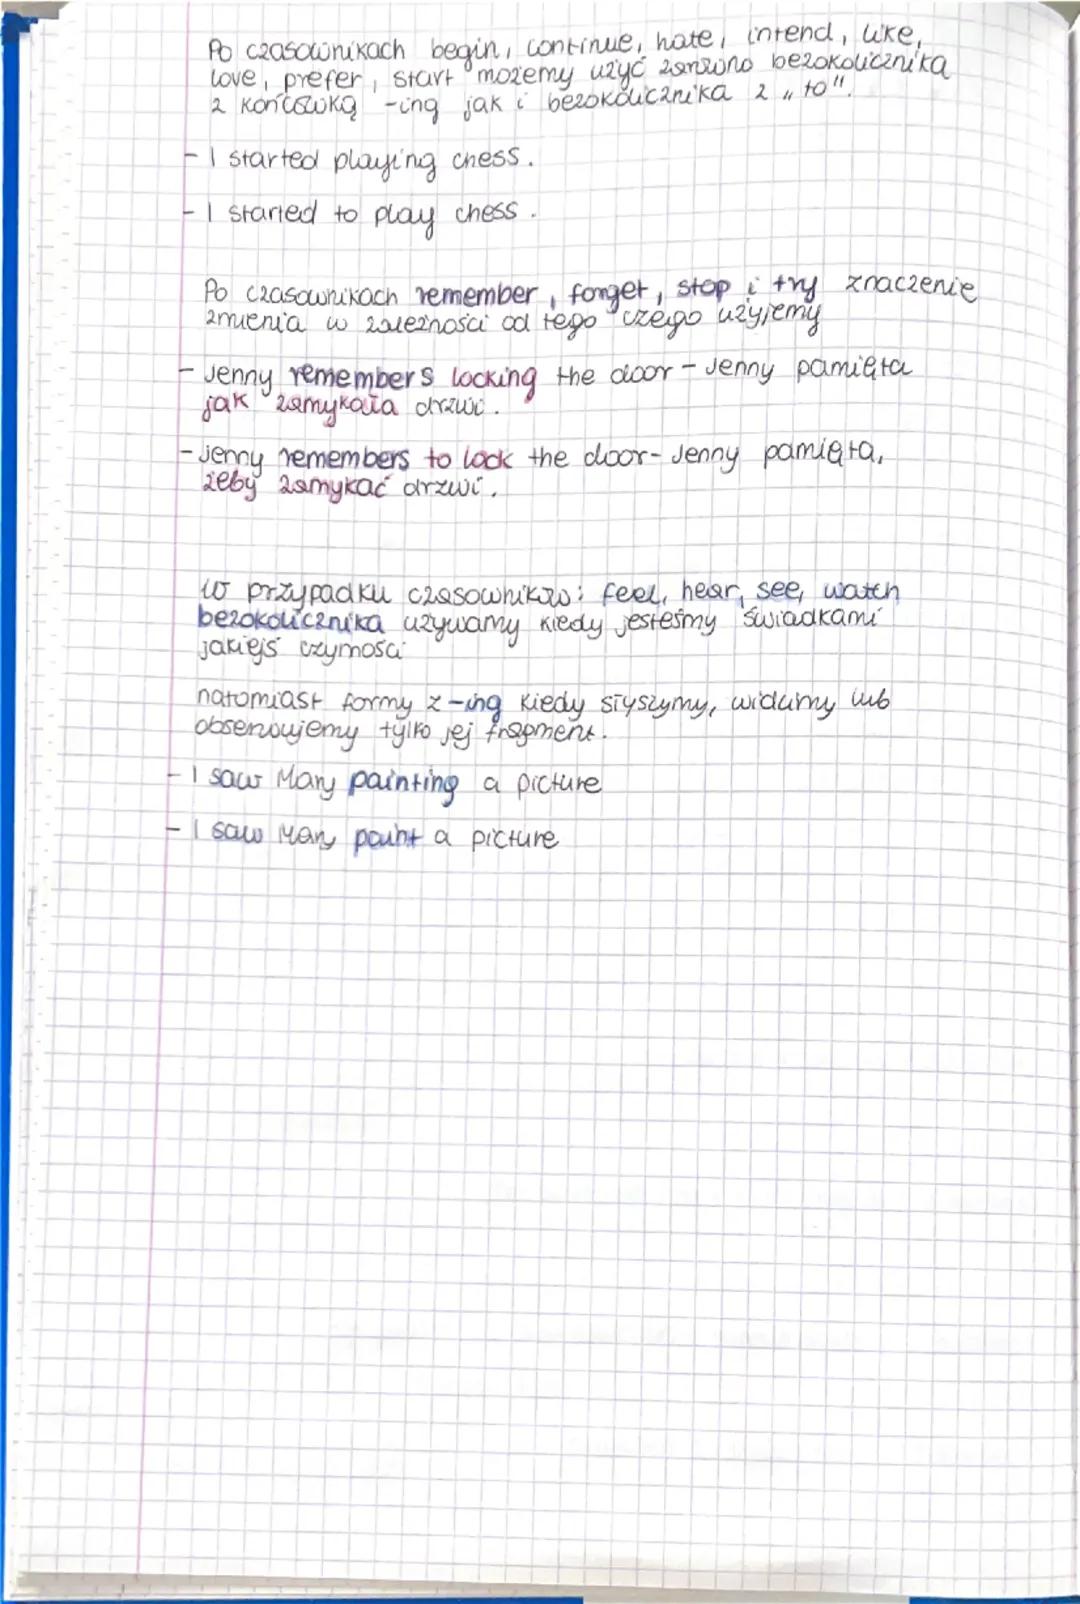 Po czasownikach begin, continue, hate, intend, like,
love, prefer, start możemy użyć zarówno bezokolicznika
z końcówką -ing jak i bezokolicznika z „to".
- I started playing chess.
- I started to play chess.
Po czasownikach remember, forget, stop i try znaczenie
zmienia w zależności od tego czego użyjemy
- Jenny remembers locking the door - Jenny pamięta
jak zamykała drzwi.
- Jenny remembers to lock the door - Jenny pamięta,
żeby zamykać drzwi.
W przypadku czasowników: feel, hear, see, watch
bezokolicznika używamy kiedy jesteśmy świadkami
jakiejś czymości
natomiast formy z -ing kiedy słyszymy, widzimy lub
obserwujemy tylko jej fragment.
- I saw Mary painting a picture
- I saw Mary paint a picture